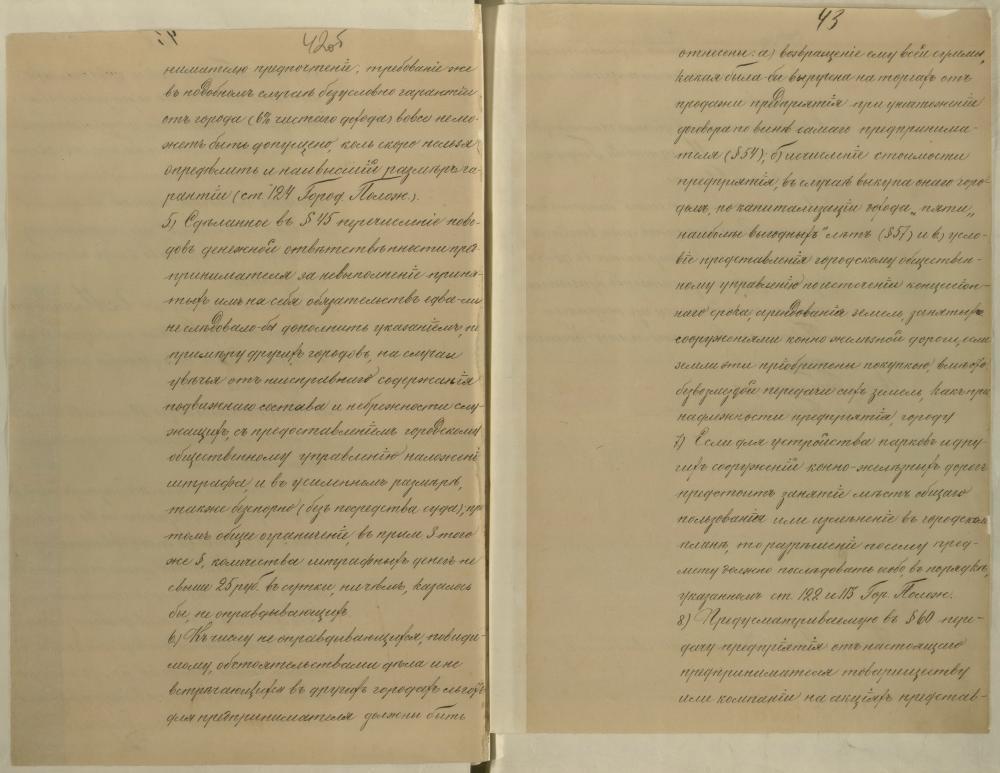 42об
нимателю предпочтенiе; требованiе же
въ подобномъ случаѣ безусловно гарантiи
отъ города (6% чистаго дохода) вовсе немо-
жетъ быть допущено, коль скоро нельзя
опредѣлить и наивысшiй размѣръ га-
рантiи (ст. 124 Город. Полож.).
5) Сдѣланное въ § 45 перечисленiе пово-
довъ денежной отвѣтственности пред-
принимателя за невыполненiе приня-
тыхъ имъ на себя обязательствъ едва-ли
не слѣдовало-бы дополнить указанiемъ, по
примѣру другихъ городовъ, на случаи
увѣчья отъ неисправнаго содержанiя
подвижнаго состава и небрежности слу-
жащихъ, съ предоставленiемъ городскому
общественному управленiю наложенiе
штрафа, и въ усиленномъ размѣрѣ,
также безспорно (безъ посредства суда); при
томъ общее ограниченiе, въ прим. 3 того
же §, количества штрафныхъ денегъ не
свыше 25 руб. въ сутки, ничѣмъ, казалось
бы, не оправдывающимся.
6) Къ числу не оправдывающихся, повиди-
мому, обстоятельствами дѣла и не
встрѣчающихся въ другихъ городахъ льготъ
для предпринимателя должны быть
43
отнесены: а) возвращенiе ему всей суммы,
какая была-бы выручена на торгахъ отъ
продажи предпрiятiя при уничтоженiи
договора по винѣ самаго предпринима-
теля (§ 54); б) исчисленiе стоимости
предпрiятiя, въ случаѣ выкупа онаго горо-
домъ, по капитализацiи дохода „пяти„
наиболѣе выгодныхъ" лѣтъ (§ 57) и в) усло-
вiе представленiя городскому обществен-
ному управленiю по истеченiи концессiон-
наго срока, арендованiя земель, занятыхъ
сооруженiями конно-желѣзной дороги, если
земли эти прiобрѣтены покупкою, вмѣсто
безвозмездной передачи сихъ земель, какъ при-
надлежности предпрiятiя, городу
7) Если для устройства парковъ и дру-
гихъ сооруженiй конно-желѣзныхъ дорогъ
предстоитъ занятiе мѣстъ общаго
пользованiя или измѣненiе въ городскомъ
планѣ, то разрѣшенiе посему пред-
мету должно послѣдовать особо, въ порядкѣ,
указанномъ ст. 122 и 113 Гор. Полож.
8) Предусматриваемую въ § 60 пере-
дачу предпрiятiя отъ настоящаго
предпринимателя товариществу
или компанiи на акцiяхъ представ-